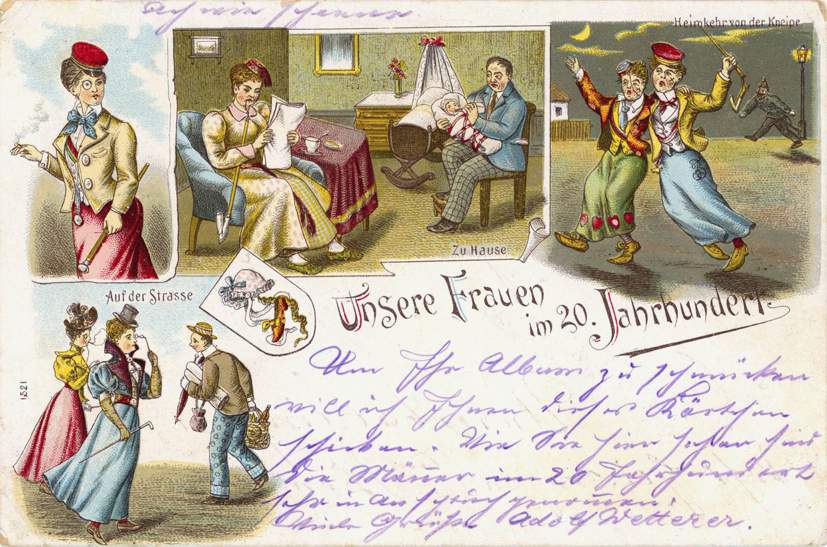 Ach wie schauer
Heimkehr von der Kneipe
Zu Hause
Auf der Strasse
Unsere Frauen
im 20. Jahrhundert.
1521
Um Ihr Album zu schmücken
will ich Ihnen dieses Kärtchen
schicken. Wie Sie hier sehen sind
die Männer im 20 Jahrhundert
sehr in Anspruch genommen.
Viele Grüße Adolf Wetterer.